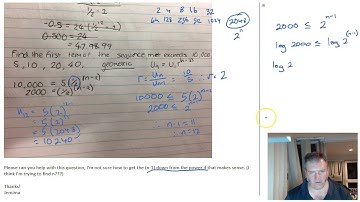 -0.5 = 24(½ⁿ - 1)
½ - 1
0.500 = 24
= 47.9899
2 4 8 16 32
64 128 256 512 1024 2048
2ⁿ
Find the first term of the sequence that exceeds 10,000
5, 10, 20, 40. geometric Uₙ = U₁r^(n-1)
10,000 = 5(2)^(n-1)
2000 = (2)^(n-1)
r = Uₙ/Uₙ₋₁ = 10/5 = 2
r = 2
10000 ≤ 5(2)^(n-1)
2000 ≤ 2^(n-1)
∴ n-1 = 11
∴ n = 12
= 5(2)^11
= 5(2048)
= 10240
2000 ≤ 2^(n-1)
log 2000 ≤ log 2^(n-1)
log 2
Please can you help with this question, I'm not sure how to get the (n-1) down from the power if that makes sense. (I
think I'm trying to find n???).
Thanks!
Jemima